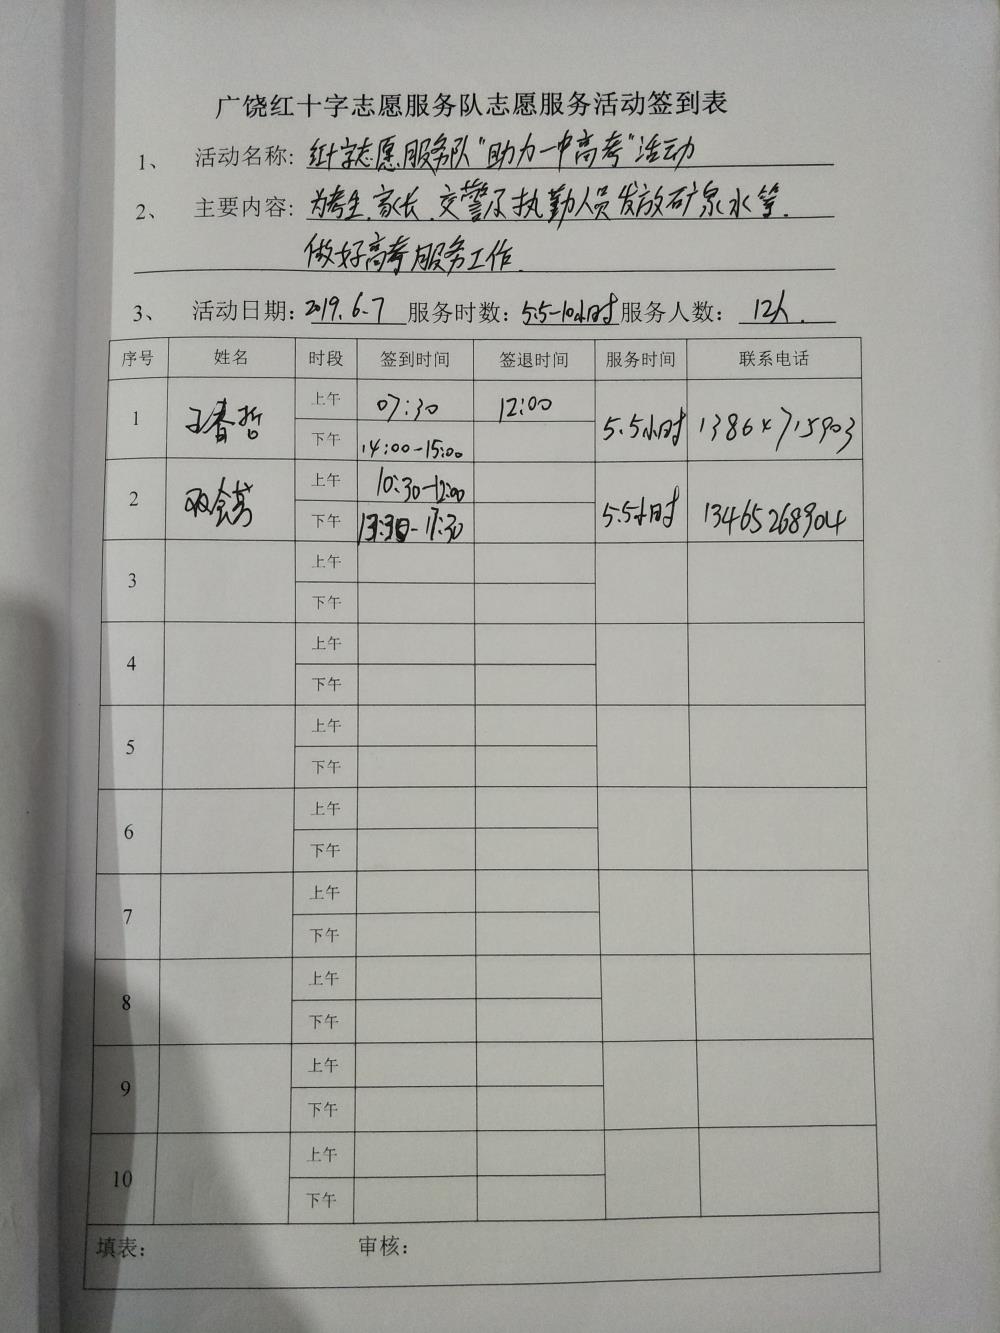 广饶红十字志愿服务队志愿服务活动签到表
1、 活动名称: 红十字志愿服务队"助力一中高考"活动
2、 主要内容: 为考生、家长、交警及执勤人员发放矿泉水等、
做好高考服务工作.
3、 活动日期: 2019.6.7 服务时数: 5.5-10小时 服务人数: 12人.
序号 姓名 时段 签到时间 签退时间 服务时间 联系电话
1 王春哲 上午 07:30 12:00 5.5小时
下午 14:00-15:00
2 上午 10:30-12:00 5.5小时 13465268904
下午 13:30-17:30
3 上午
下午
4 上午
下午
5 上午
下午
6 上午
下午
7 上午
下午
8 上午
下午
9 上午
下午
10 上午
下午
填表: 审核: